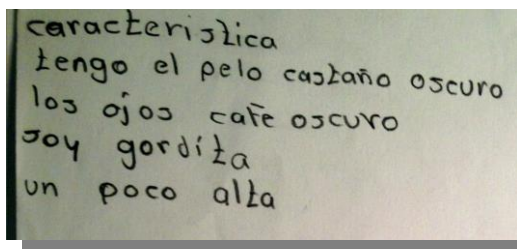 caracteristica
tengo el pelo castaño oscuro
los ojos cafe oscuro
soy gordita
un poco alta